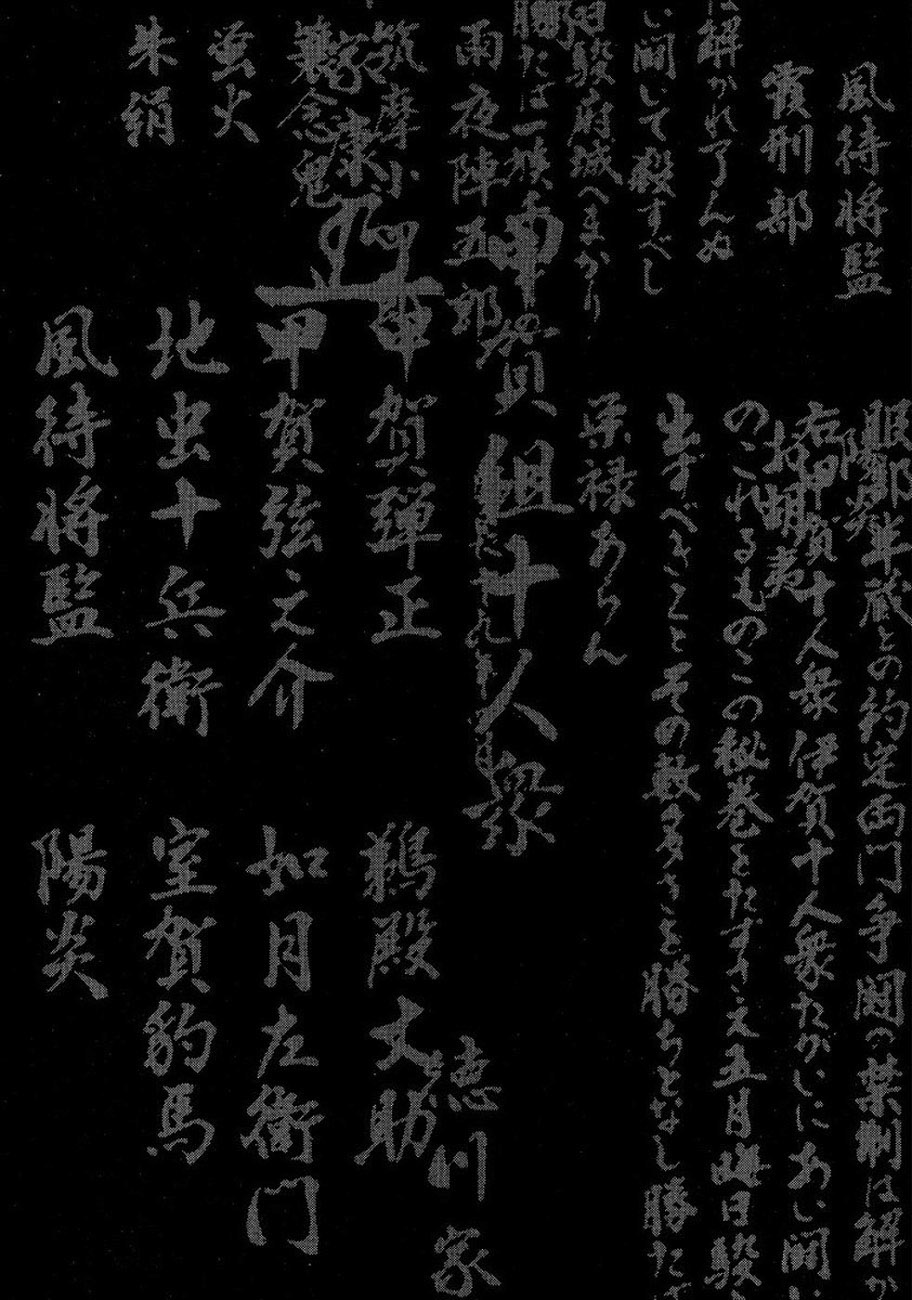 風待将監
霞刑部
は解かれ了んぬ
い闘いて殺すべし
駿府城へまかり
勝たば一族
雨夜陣五郎
筑摩小
簔念鬼
蛍火
朱絹
服部半蔵との約定両門争闘の禁制は解か
陽炎
右甲賀十人衆伊賀十人衆たがいにあい闘い
お胡夷
のこれるものこの秘巻をたずさえ五月晦日駿
生ずべきことその数多きを勝ちとなし勝たば
栄禄あらん
甲賀組十人衆
甲賀弾正
甲賀弦之介
地虫十兵衛
風待将監
鵜殿丈助
如月左衛門
室賀豹馬
陽炎
徳川家
康